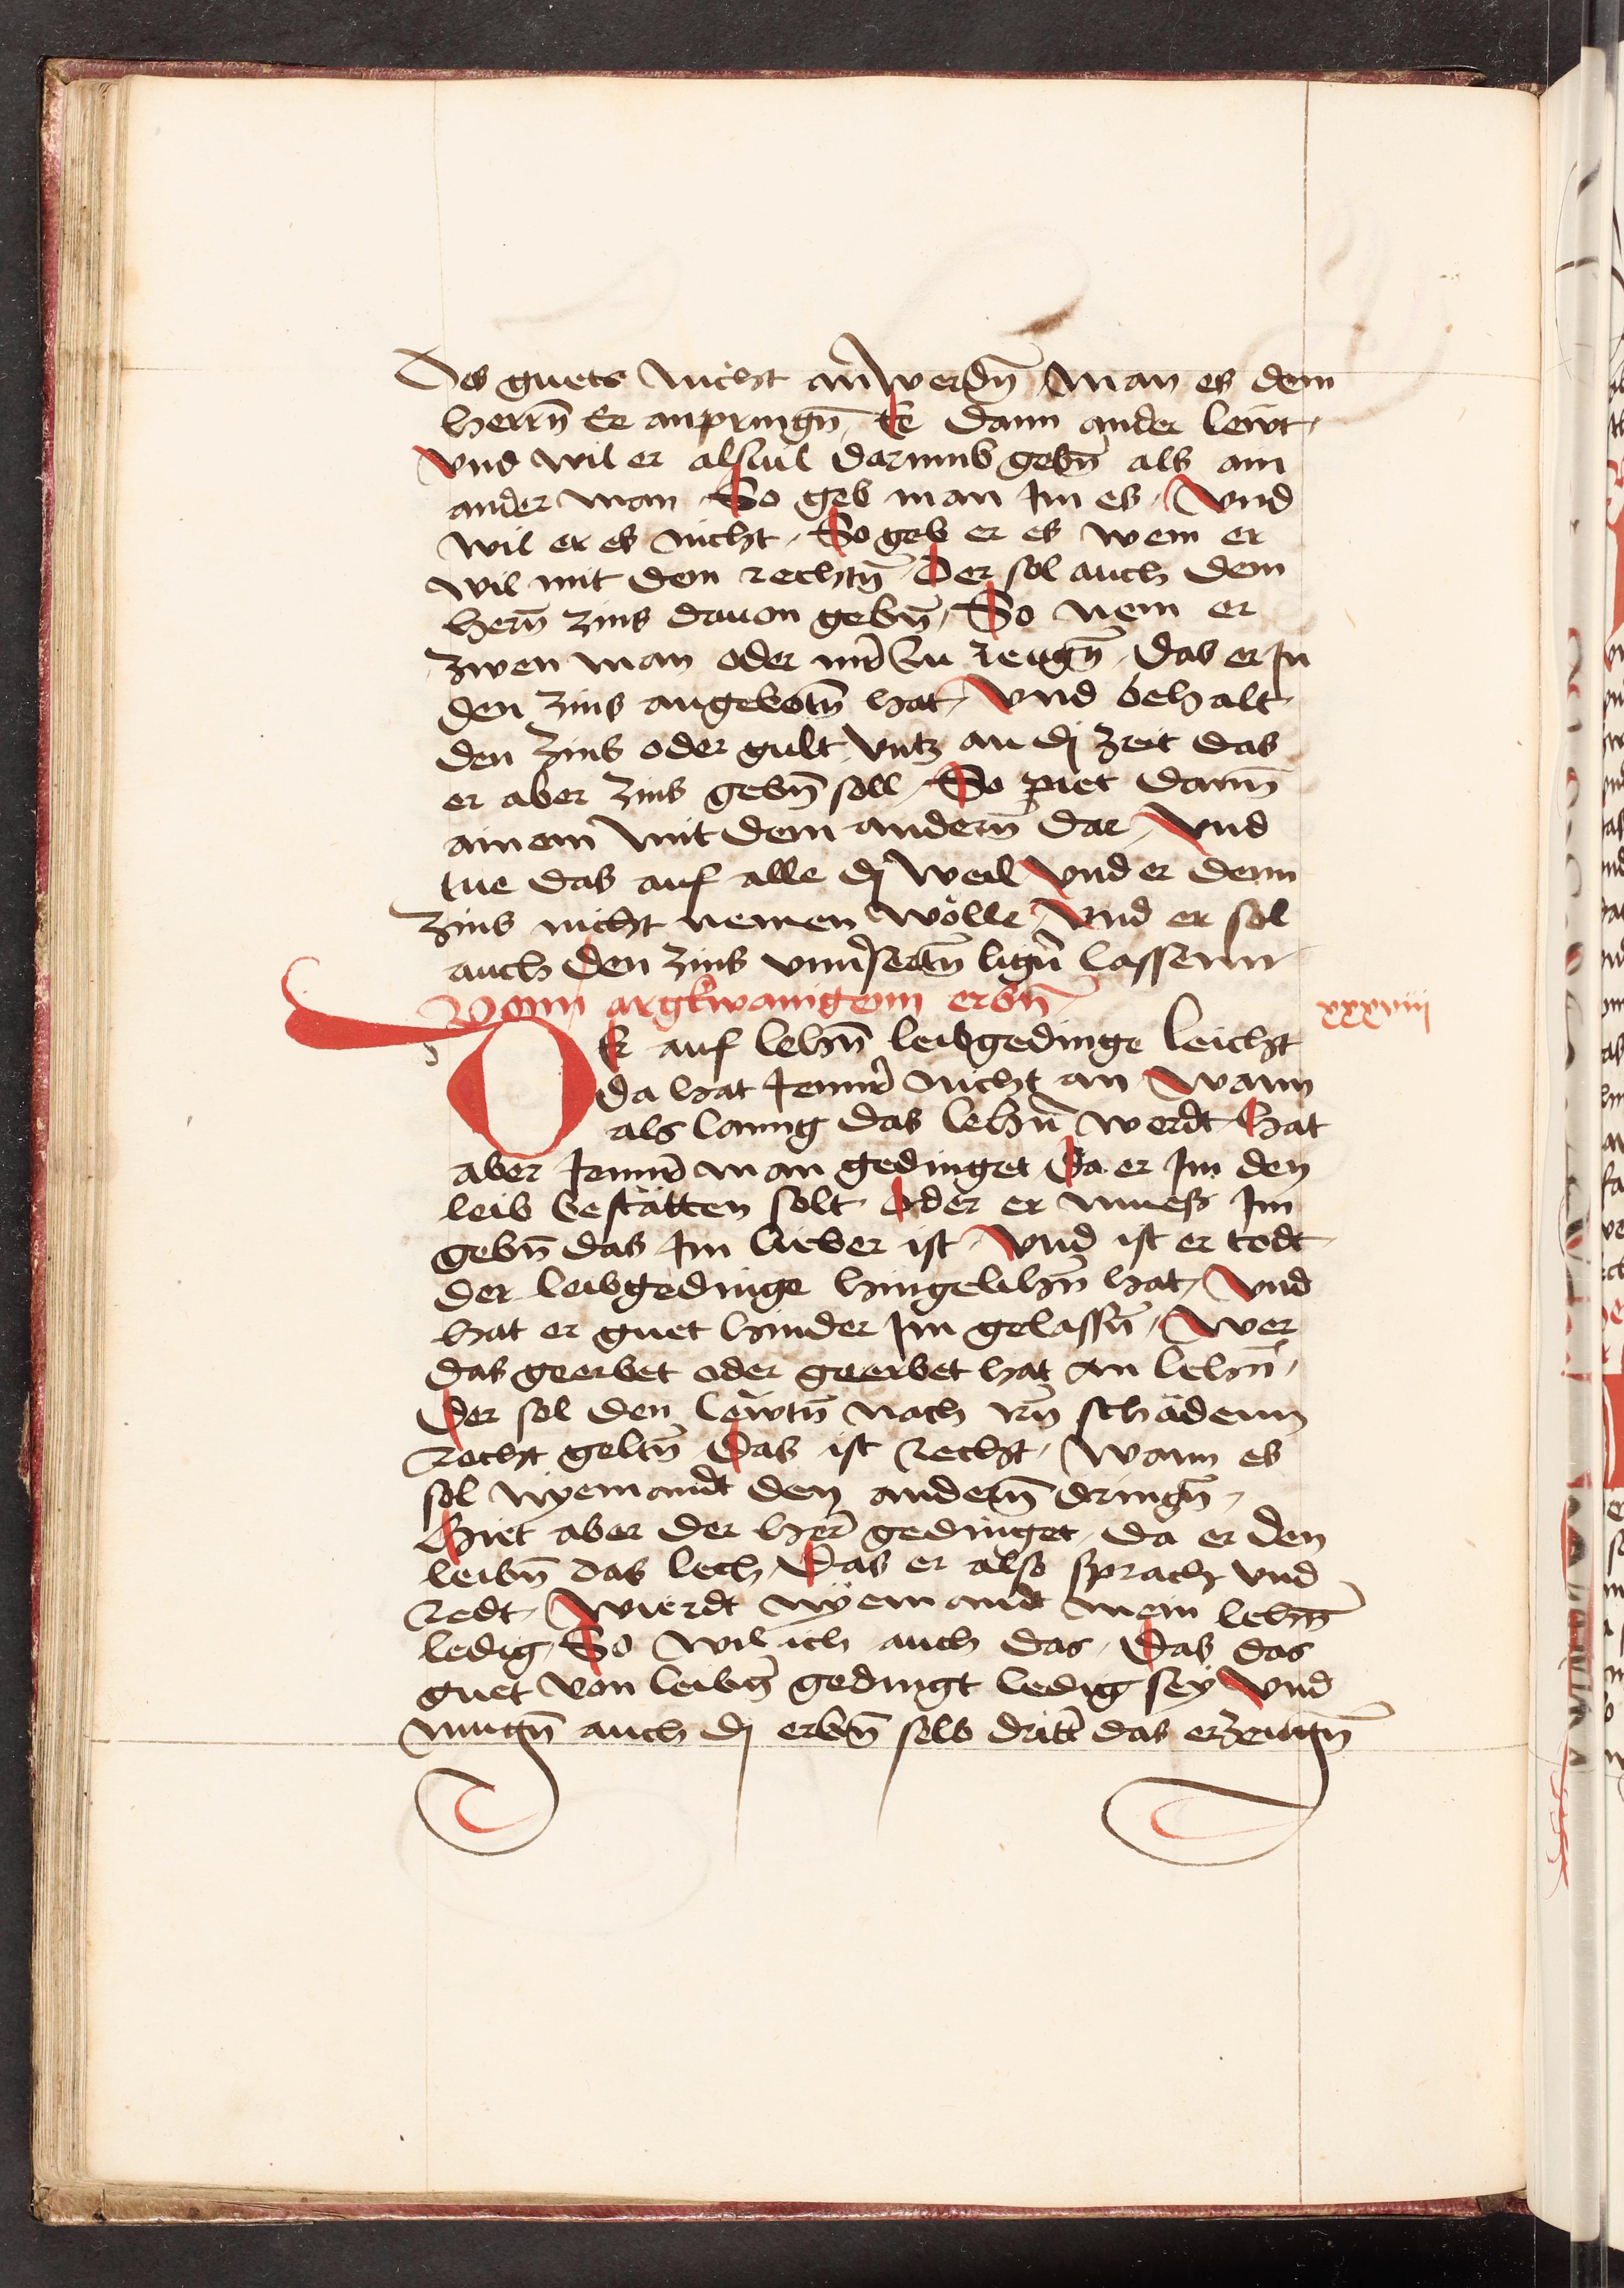 Des guets nicht anwerdn̄ man es dem
herrn̄ Ee anpringn̄ Ee dann ander lewt
Vnd wil er alsuil darumb gebn̄ als ain
ander man So geb man Im es Vnd
wil er es nicht So geb er es wem er
wil mit dem rechtn̄ Der sol auch dem
hern̄ zins dauon gebn̄ So nem er
zwen man oder mer zu zeugn̄ Das er In
den zins angebotn̄ hat Vnd behalt
den zins oder gult vntz an dj zeit das
er aber zins gebn̄ soll So piet dann
ainem mit dem andern̄ dar Vnd
tue das auf alle dj weil Vnd er denn
zins nicht nemen wölle Vnd er sol
auch den zins lign̄ lassenn
Vonn argkwanigenn erbn̄
xxxviiij
Er auf lehn̄ leibgedinge leicht
da hat Jenner nicht an wann
als lanng das lehn̄ werdt hat
aber Jenner man gedinget Da er Im den
leib bestätten solt Oder er mues Im
gebn̄ das Im lieber ist Vnd ist er todt
der leibgedinge hingelihn̄ hat Vnd
hat er guet hinder Im gelassn̄ Wer
das geerbet oder geerbet hat an lehn̄
Der sol den lewtn̄ nach irn̄ schädenn
recht geltn̄ Das ist recht Wann es
sol nyemandt den andern̄ dringn̄
Hiet aber der herr gedinget da er den
leibn̄ das lech Das er also sprach vnd
redt Wierdt nyemandt mein lehn̄
ledig So wil ich auch das Das das
guet von leibs gedingt ledig sey Vnd
mugn̄ auch dj erbn̄ selb dritt das erzeugn̄